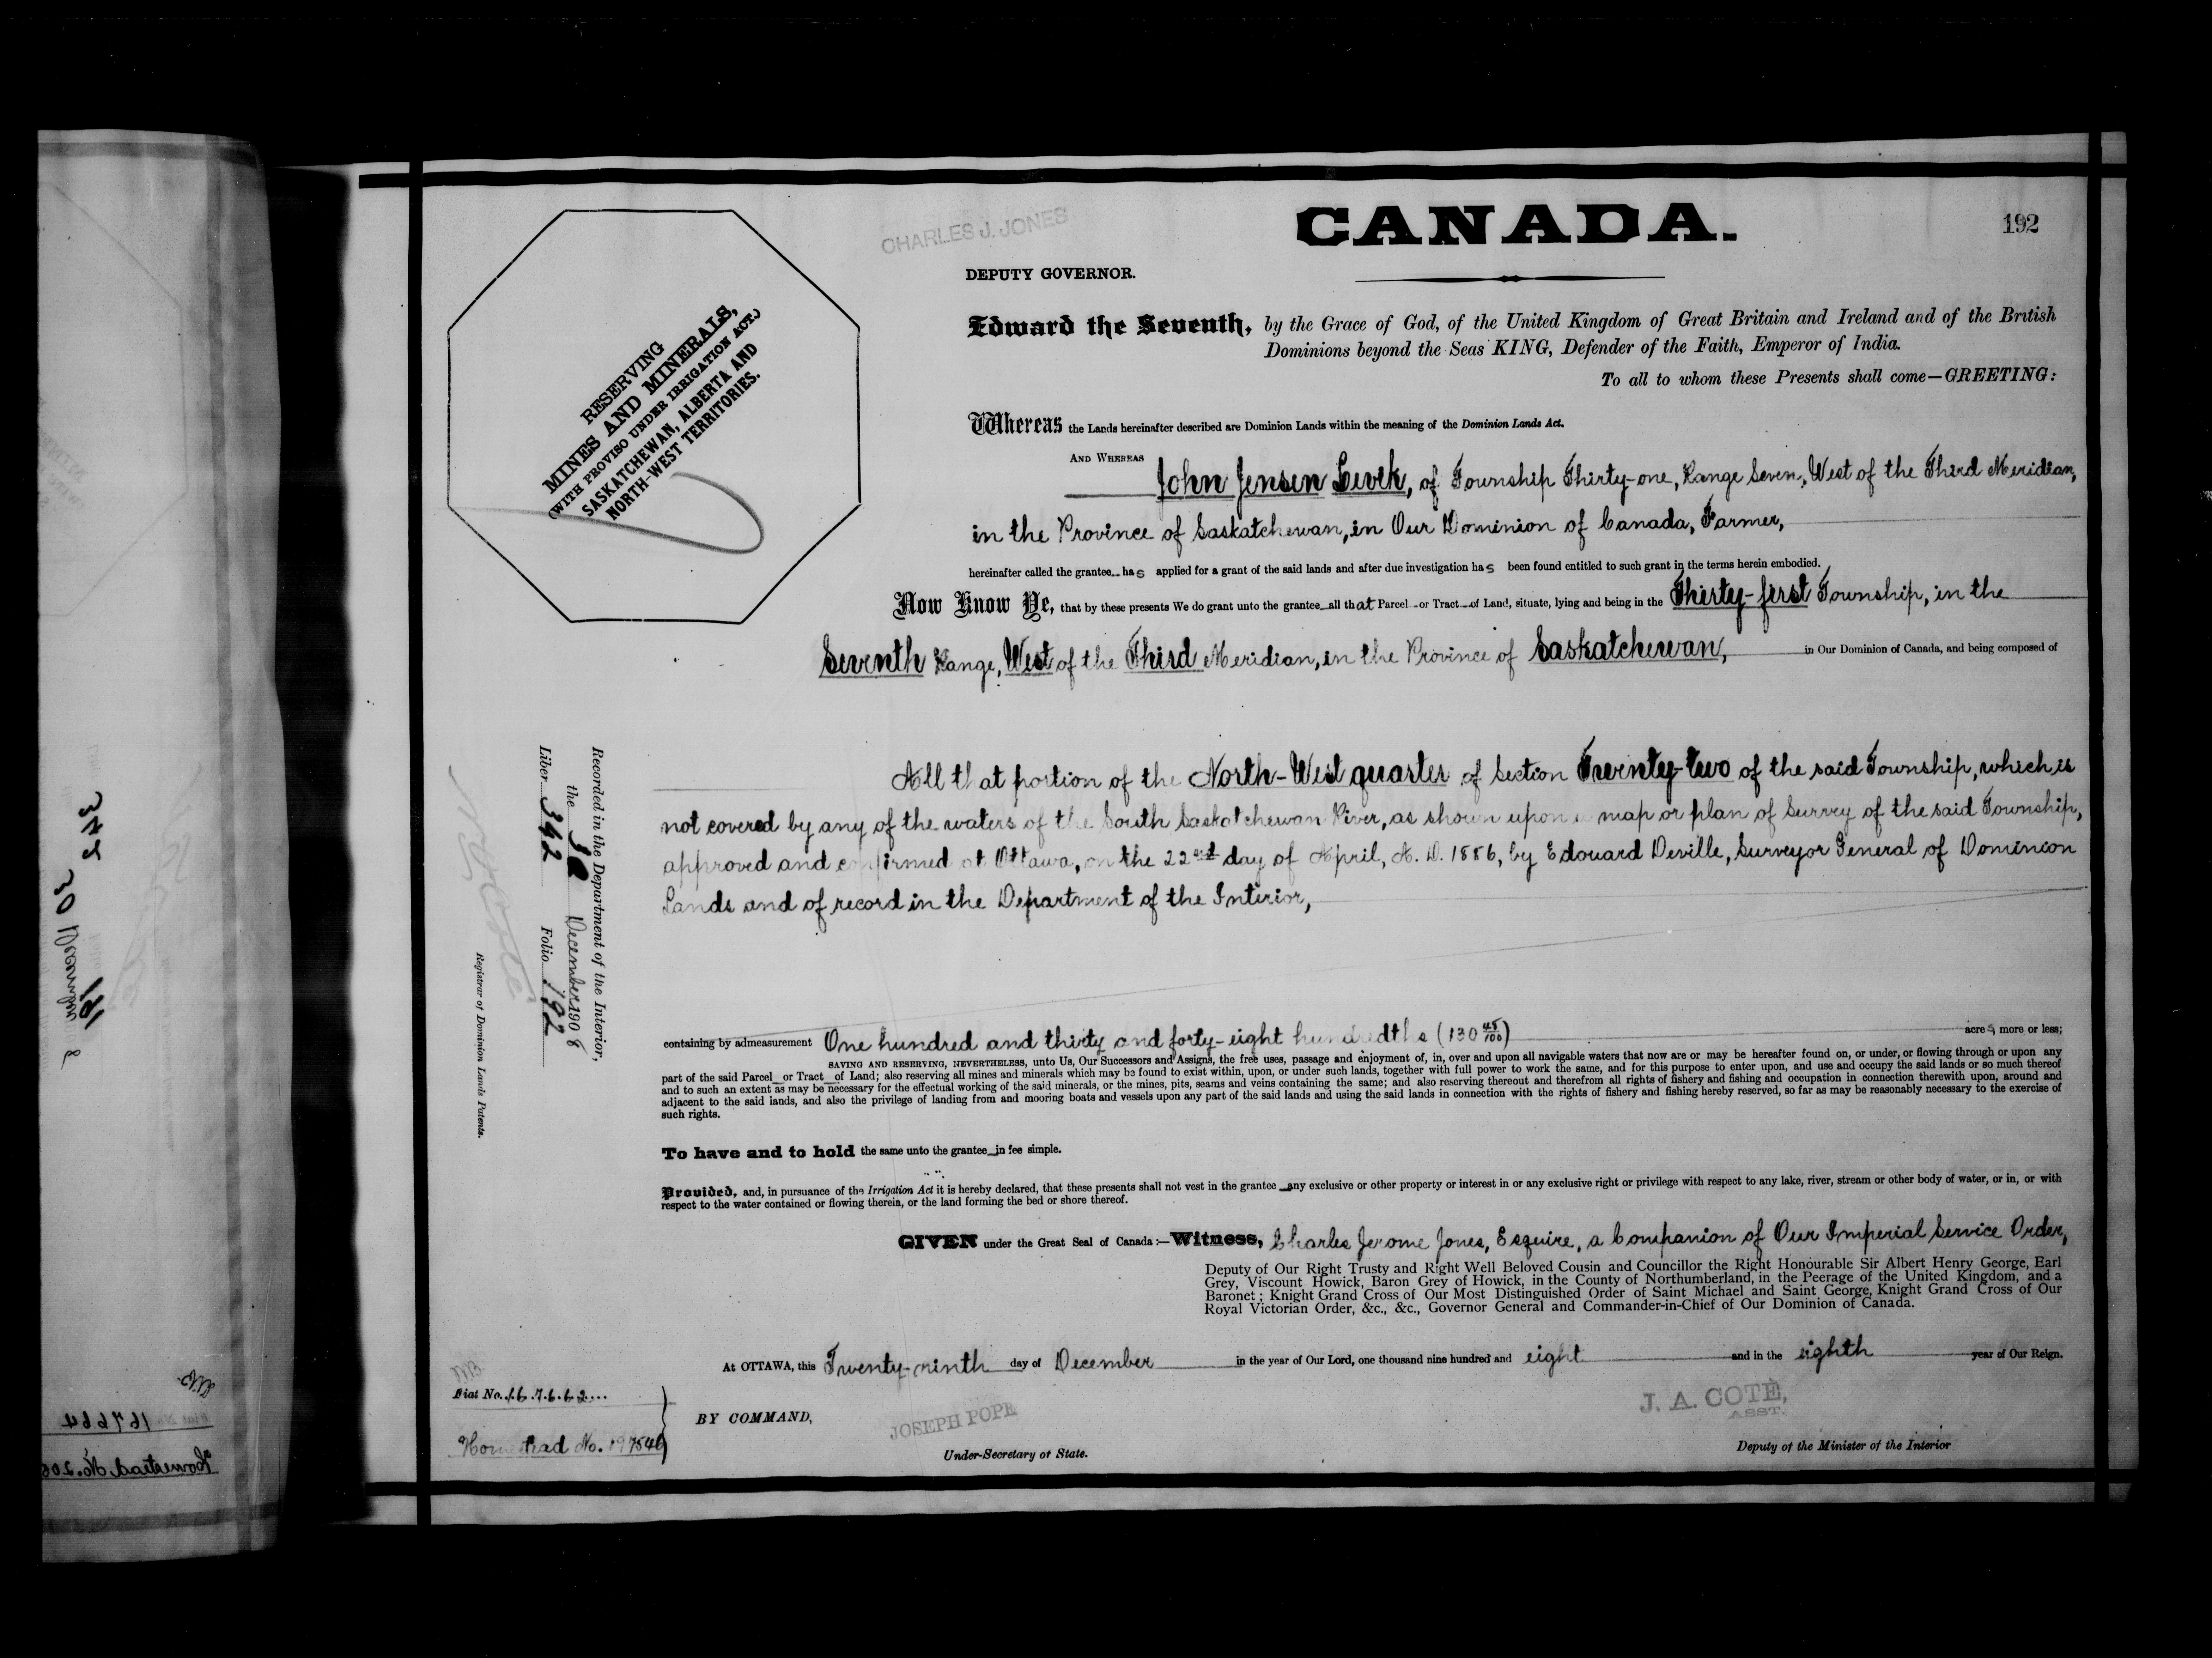 CANADA.
192
CHARLES J. JONES
DEPUTY GOVERNOR.
RESERVING
MINES AND MINERALS,
(WITH PROVISO UNDER IRRIGATION ACT.)
SASKATCHEWAN, ALBERTA AND
NORTH-WEST TERRITORIES.
Edward the Seventh, by the Grace of God, of the United Kingdom of Great Britain and Ireland and of the British
Dominions beyond the Seas KING, Defender of the Faith, Emperor of India.
To all to whom these Presents shall come—GREETING:
Whereas the Lands hereinafter described are Dominion Lands within the meaning of the Dominion Lands Act.
AND WHEREAS
John Jensen Levek, of Township Thirty-one, Range Seven, West of the Third Meridian,
in the Province of Saskatchewan, in Our Dominion of Canada, Farmer,
hereinafter called the grantee has applied for a grant of the said lands and after due investigation has been found entitled to such grant in the terms herein embodied.
Now Know Ye, that by these presents We do grant unto the grantee all that Parcel or Tract of Land, situate, lying and being in the Thirty-first Township, in the
Seventh Range, West of the Third Meridian, in the Province of Saskatchewan, in Our Dominion of Canada, and being composed of
All that portion of the North-West quarter of Section Twenty-two of the said Township, which is
not covered by any of the waters of the South Saskatchewan River, as shown upon a map or plan of Survey of the said Township,
approved and confirmed at Ottawa, on the 22nd day of April, A. D. 1886, by Edouard Deville, Surveyor General of Dominion
Lands and of record in the Department of the Interior,
containing by admeasurement One hundred and thirty and forty-eight hundredths (130 48/100) acres, more or less;
SAVING AND RESERVING, NEVERTHELESS, unto Us, Our Successors and Assigns, the free uses, passage and enjoyment of, in, over and upon all navigable waters that now are or may be hereafter found on, or under, or flowing through or upon any
part of the said Parcel or Tract of Land; also reserving all mines and minerals which may be found to exist within, upon, or under such lands, together with full power to work the same, and for this purpose to enter upon, and use and occupy the said lands or so much thereof
and to such an extent as may be necessary for the effectual working of the said minerals, or the mines, pits, seams and veins containing the same; and also reserving thereout and therefrom all rights of fishery and fishing and occupation in connection therewith upon, around and
adjacent to the said lands, and also the privilege of landing from and mooring boats and vessels upon any part of the said lands and using the said lands in connection with the rights of fishery and fishing hereby reserved, so far as may be reasonably necessary to the exercise of
such rights.
To have and to hold the same unto the grantee in fee simple.
Provided, and, in pursuance of the Irrigation Act it is hereby declared, that these presents shall not vest in the grantee any exclusive or other property or interest in or any exclusive right or privilege with respect to any lake, river, stream or other body of water, or in, or with
respect to the water contained or flowing therein, or the land forming the bed or shore thereof.
GIVEN under the Great Seal of Canada:—Witness, Charles Jerome Jones, Esquire, a Companion of Our Imperial Service Order,
Deputy of Our Right Trusty and Right Well Beloved Cousin and Councillor the Right Honourable Sir Albert Henry George, Earl
Grey, Viscount Howick, Baron Grey of Howick, in the County of Northumberland, in the Peerage of the United Kingdom, and a
Baronet; Knight Grand Cross of Our Most Distinguished Order of Saint Michael and Saint George, Knight Grand Cross of Our
Royal Victorian Order, &c., &c., Governor General and Commander-in-Chief of Our Dominion of Canada.
At OTTAWA, this Twenty-ninth day of December in the year of Our Lord, one thousand nine hundred and eight and in the eighth year of Our Reign.
BY COMMAND,
JOSEPH POPE
Under-Secretary of State.
J. A. COTÉ,
ASST.
Deputy of the Minister of the Interior
Fiat No. 167662
Homestead No.
Recorded in the Department of the Interior,
the December 1908
Liber 342 Folio 192
Registrar of Dominion Lands Patents.
342
30 December
191
8
167664
Homestead No.